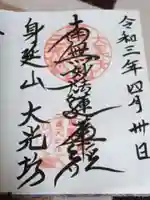 令和三年四月卅日
南無妙法蓮華経
身延山 大光坊